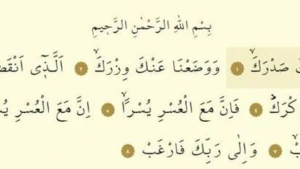 بِسْمِ اللهِ الرَّحْمٰنِ الرَّحٖيمِ
صَدْرَكَۙ ١ وَوَضَعْنَا عَنْكَ وِزْرَكَۙ ٢ اَلَّذٖٓي
فَاِنَّ مَعَ الْعُسْرِ يُسْرًاۙ ٥ اِنَّ مَعَ الْعُسْرِ
٧ وَاِلٰى رَبِّكَ فَارْغَبْ ٨